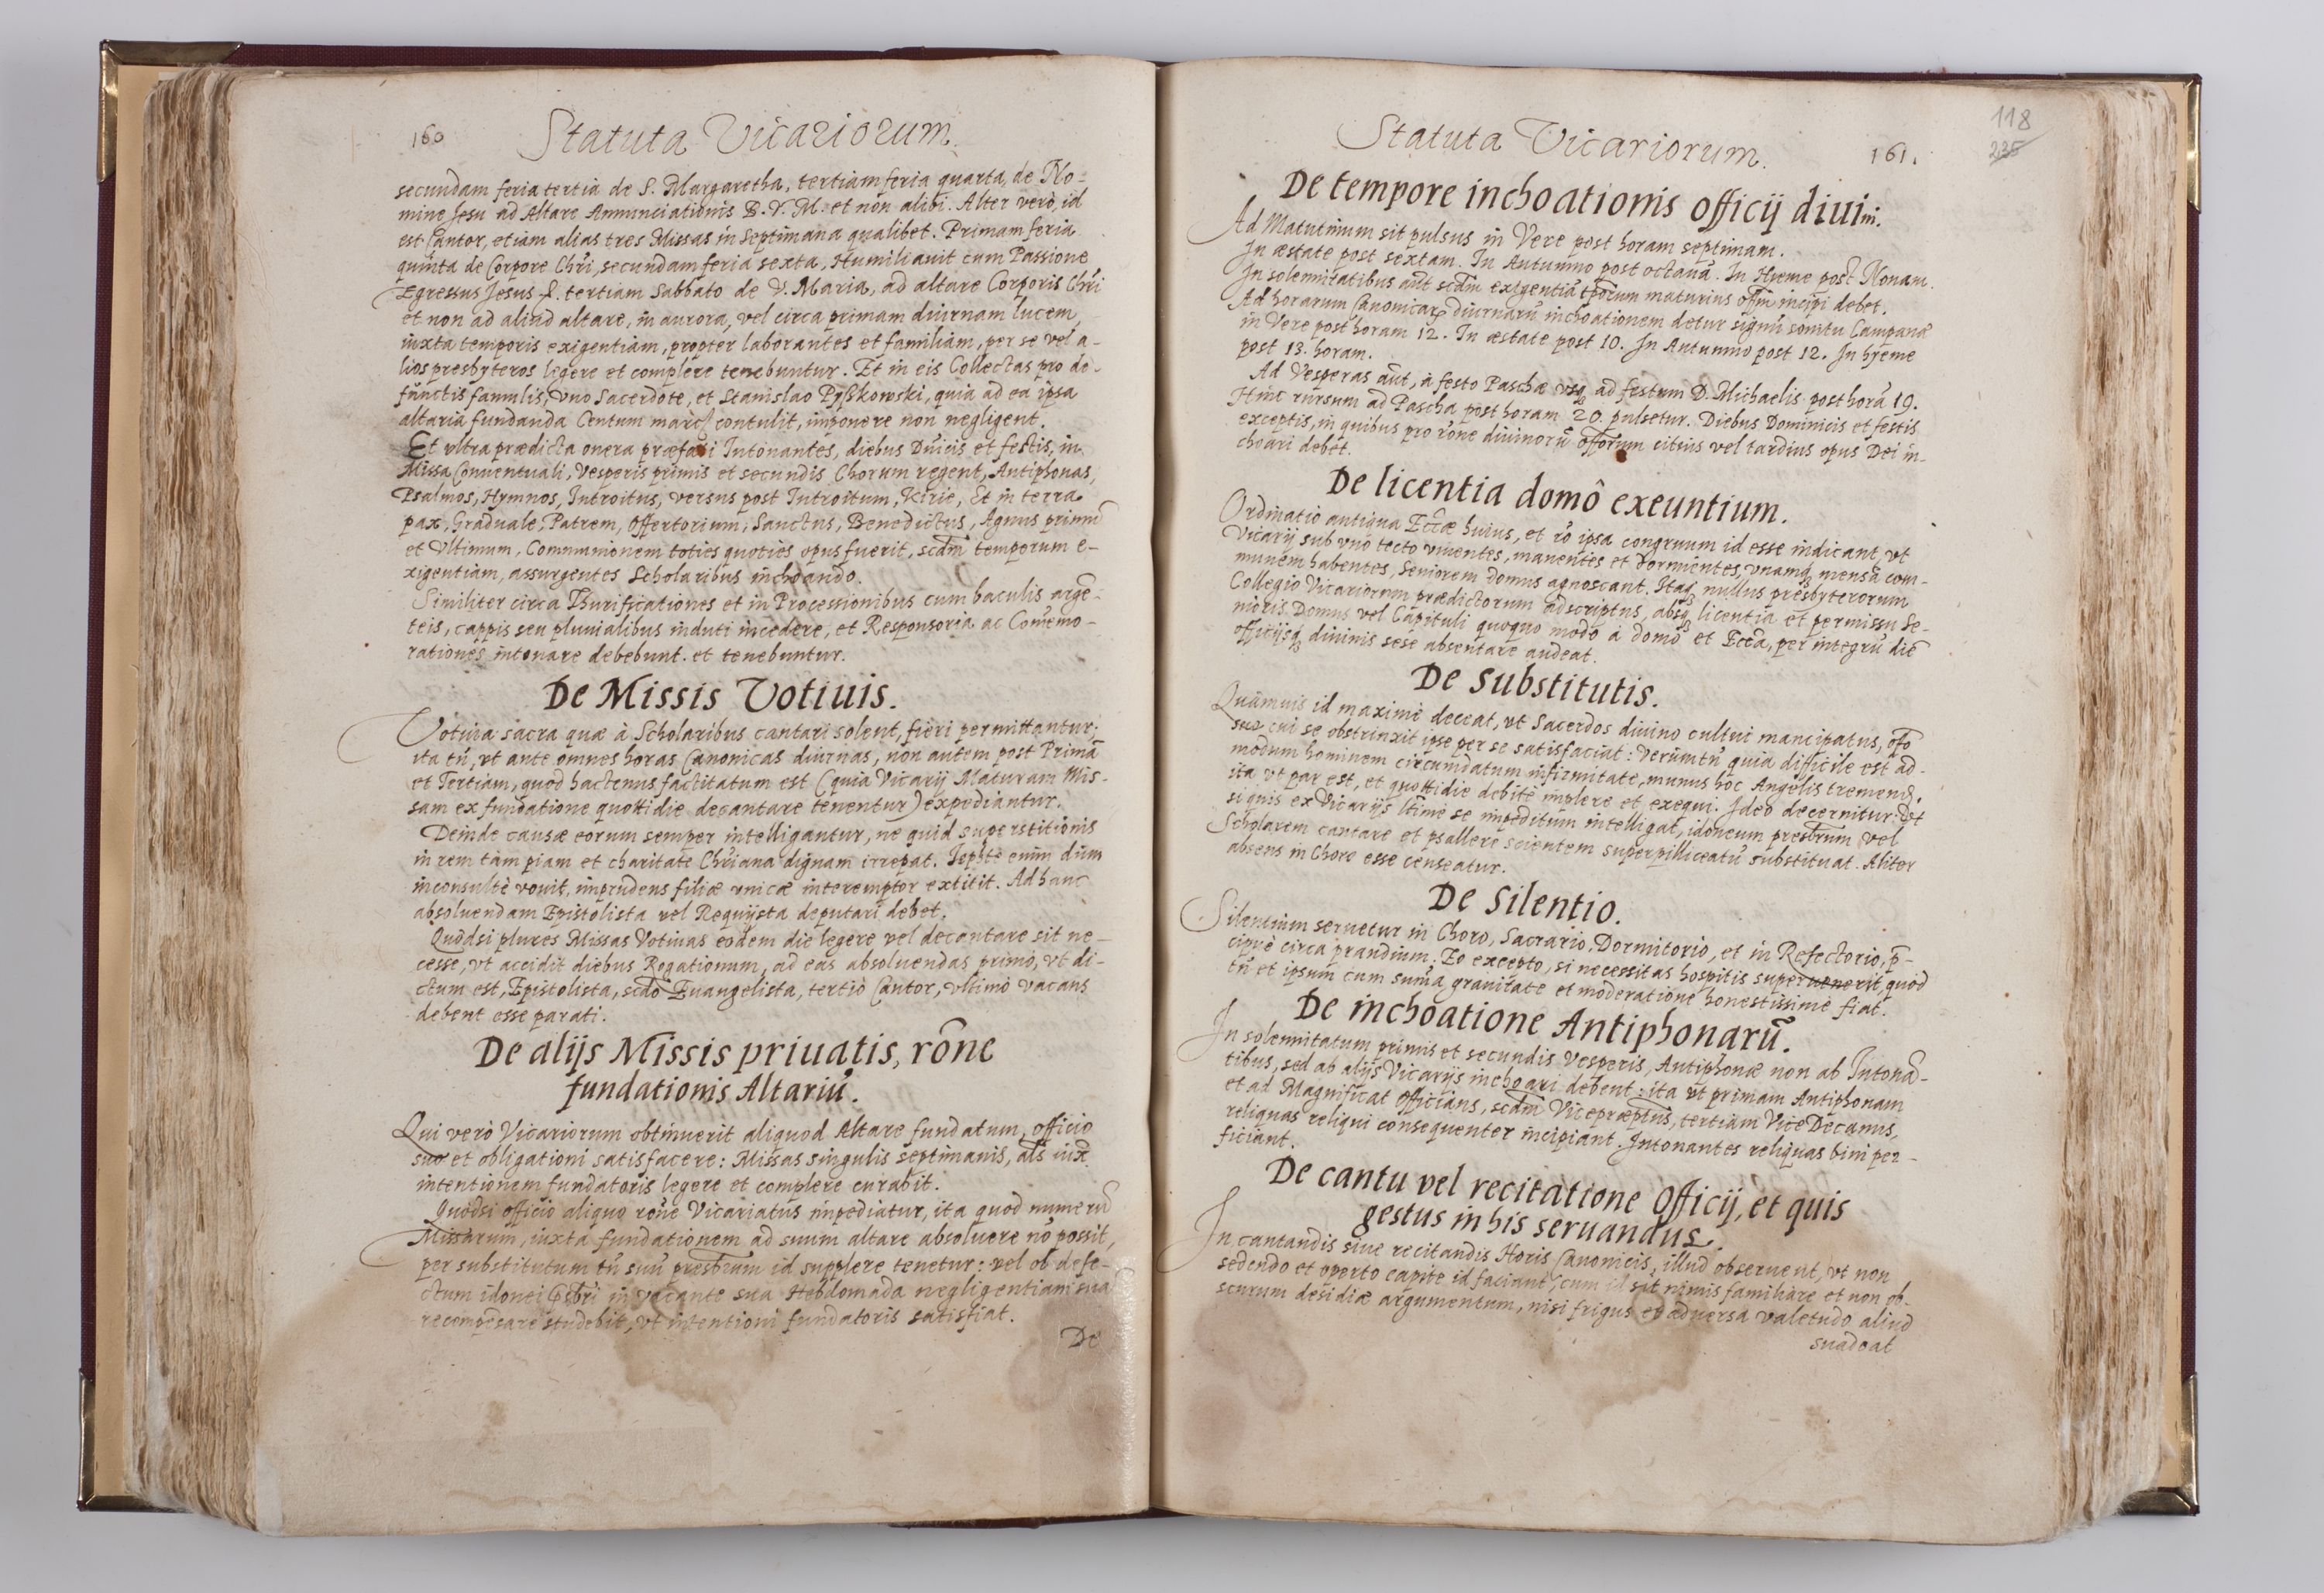 160 Statuta Vicariorum.
secundam feria tertia de S. Margaretha, tertiam feria quarta, de No-
mine Jesu ad Altare Annunciationis B. V. M. et non alibi. Alter verò, id
est Cantor, etiam alias tres Missas in Septimana qualibet. Primam feria
quinta de Corpore Chři, secundam feria sexta, Humiliauit cum Passione
Egressus Jesus &. tertiam Sabbato de V. Maria, ad altare Corporis Chři
et non ad aliud altare, in aurora, vel circa primam diurnam lucem,
iuxta temporis exigentiam, propter laborantes et familiam, per se vel a-
lios presbyteros legere et complere tenebuntur. Et in eis Collectas pro de-
functis famulis, vno Sacerdote, et Stanislao Pyßkowski, quia ad ea ipsa
altaria fundanda Centum marc contulit, imponere non negligent.
Et vltra prædicta onera præfati Intonantes, diebus Dnicis et festis, in
Missa Conuentuali, Vesperis primis et secundis Chorum regent, Antiphonas,
Psalmos, Hymnos, Introitus, versus post Introitum, Kirie, Et in terra
pax, Graduale, Patrem, Offertorium, Sanctus, Benedictus, Agnus primũ
et Vltimum, Communionem toties quoties opus fuerit, scdm̃ temporum e-
xigentiam, assurgentes Scholaribus inchoando.
Similiter circa Thurificationes et in Processionibus cum baculis argē-
teis, cappis seu pluuialibus induti incedere, et Responsoria ac Com̃emo-
rationes intonare debebunt. et tenebuntur.
De Missis Votiuis.
Votiua sacra quæ à Scholaribus cantari solent, fieri permittantur;
ita tñ, vt ante omnes horas Canonicas diurnas, non autem post Primã
et Tertiam, quod hactenus factitatum est (quia Vicarij Maturam Mis-
sam ex fundatione quottidie decantare tenentur) expediantur.
Deinde causæ eorum semper intelligantur, ne quid superstitionis
in rem tam piam et charitate Chřiana dignam irrepat. Jephte enim dum
inconsultè vouit, imprudens filiæ vnicæ interemptor extitit. Ad hanc
absoluendam Epistolista vel Requijsta deputari debet.
Quodsi plures Missas Votiuas eodem die legere vel decantare sit ne-
cesse, vt accidit diebus Rogationum, ad eas absoluendas primò, vt di-
ctum est, Epistolista, scdo Euangelista, tertiò Cantor, vltimò vacans
debent esse parati.
De alijs Missis priuatis, rône
fundationis Altariũ.
Qui verò Vicariorum obtinuerit aliquod Altare fundatum, officio
suo et obligationi satisfacere: Missas singulis septimanis, als iuxª
intentionem fundatoris legere et complere curabit.
Quodsi officio aliquo rône Vicariatus impediatur, ita quod numerũ
Missarum, iuxta fundationem ad suum altare absoluere nõ possit,
per substitutum tñ suũ presbrum id supplere tenetur: vel ob defe-
ctum idonei Psbri in vacante sua Hebdomada negligentiam suã
recompēsare studebit, vt intentioni fundatoris satisfiat.
De
118
235
Statuta Vicariorum. 161.
De tempore inchoationis officij diuini.
Ad Matutinum sit pulsus in Vere post horam septimam.
In æstate post sextam. In Autumno post octauã. In Hyeme post Nonam.
In solennitatibus aũt scdm̃ exigentiã tporum maturius offm̃ incipi debet.
Ad horarum Canonicar diurnarũ inchoationem detur signũ sonitu Campanæ
in Vere post horam 12. In æstate post 10. In Autumno post 12. In hyeme
post 13. horam.
Ad Vesperas aũt, à festo Paschæ vsq ad festum D. Michaelis post horã 19.
Hinc rursum ad Pascha post horam 20 pulsetur. Diebus Dominicis et festis
exceptis, in quibus pro rône diuinorũ offorum citius vel tardius opus Dei in-
choari debet.
De licentia domô exeuntium.
Ordinatio antiqua Eccæ huius, et rô ipsa congruum id esse indicant, vt
Vicarij sub vno tecto viuentes, manentes et dormientes, vnamq mensã com-
munem habentes, Seniorem domus agnoscant. Itaq nullus presbyterorum
Collegio Vicariorum prædictorum adscriptus, absq licentia et permissu Se-
nioris Domus vel Capituli quoquo modo a domo et Ecca, per integrũ diē
officijsq diuinis sese absentare audeat.
De Substitutis.
Quãmuis id maximè deceat, vt Sacerdos diuino cultui mancipatus, offo
suo cui se obstrinxit ipse per se satisfaciat: Verùm tñ quia difficile est ad-
modum hominem circumdatum infirmitate, munus hoc Angelis tremend.
ita vt par est, et quottidie debitè implere et exequi. Ideo decernitur: Vt
si quis ex Vicarijs ltime se impeditum intelligat, idoneum presbrum vel
Scholarem cantare et psallere scientem superpilliceatũ substituat. Aliter
absens in Choro esse censeatur.
De Silentio.
Silentium seruetur in Choro, Sacrario, Dormitorio, et in Refectorio, p̄-
cipuè circa prandium. Eo excepto, si necessitas hospitis superuenerit, quod
tñ et ipsum cum sum̃a grauitate et moderatione honestissimè fiat.
De inchoatione Antiphonarũ.
In solennitatum primis et secundis Vesperis, Antiphonæ non ab Intonã-
tibus, sed ab alijs Vicarijs inchoari debent: ita vt primam Antiphonam
et ad Magnificat Officians, scdam Vicepræptus, tertiam ViceDecanus,
reliquas reliqui consequenter incipiant. Intonantes reliquas bini per-
ficiant.
De cantu vel recitatione Officij, et quis
gestus in his seruandus.
In cantandis siue recitandis Horis Canonicis, illud obseruent, vt non
sedendo et operto capite id faciant, cum id sit nimis familiare et non ob-
scurum desidiæ argumentum, nisi frigus et aduersa valetudo aliud
suadeat